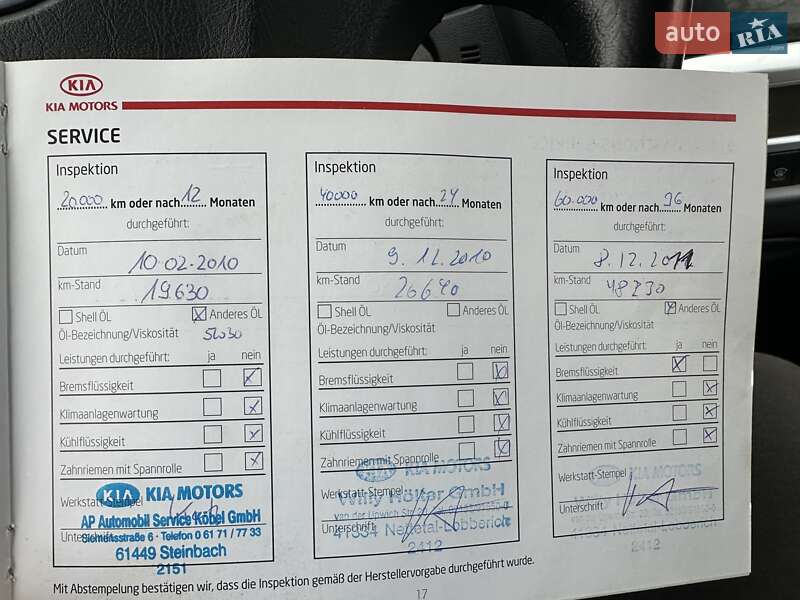 auto RIA
KIA
KIA MOTORS
SERVICE
Inspektion
20.000 km oder nach 12 Monaten
durchgeführt:
Datum
10.02.2010
km-Stand
19.630
Shell ÖL Anderes ÖL
Öl-Bezeichnung/Viskosität 5W30
Leistungen durchgeführt: ja nein
Bremsflüssigkeit
Klimaanlagenwartung
Kühlflüssigkeit
Zahnriemen mit Spannrolle
Werkstatt-Stempel
KIA KIA MOTORS
AP Automobil Service Köbel GmbH
Siemensstraße 6 · Telefon 0 61 71 / 77 33
61449 Steinbach
2151
Inspektion
40000 km oder nach 24 Monaten
durchgeführt:
Datum
9.12.2010
km-Stand
26690
Shell ÖL Anderes ÖL
Öl-Bezeichnung/Viskosität
Leistungen durchgeführt: ja nein
Bremsflüssigkeit
Klimaanlagenwartung
Kühlflüssigkeit
Zahnriemen mit Spannrolle
KIA MOTORS
Werkstatt-Stempel
Willy Hölter GmbH
Unterschrift
41334 Nettetal-Lobberich
2412
Inspektion
60.000 km oder nach 36 Monaten
durchgeführt:
Datum
8.12.2011
km-Stand
48730
Shell ÖL Anderes ÖL
Öl-Bezeichnung/Viskosität
Leistungen durchgeführt: ja nein
Bremsflüssigkeit
Klimaanlagenwartung
Kühlflüssigkeit
Zahnriemen mit Spannrolle
Werkstatt-Stempel
KIA MOTORS
Unterschrift
41334 Nettetal-Lobberich
2412
Mit Abstempelung bestätigen wir, dass die Inspektion gemäß der Herstellervorgabe durchgeführt wurde.
17